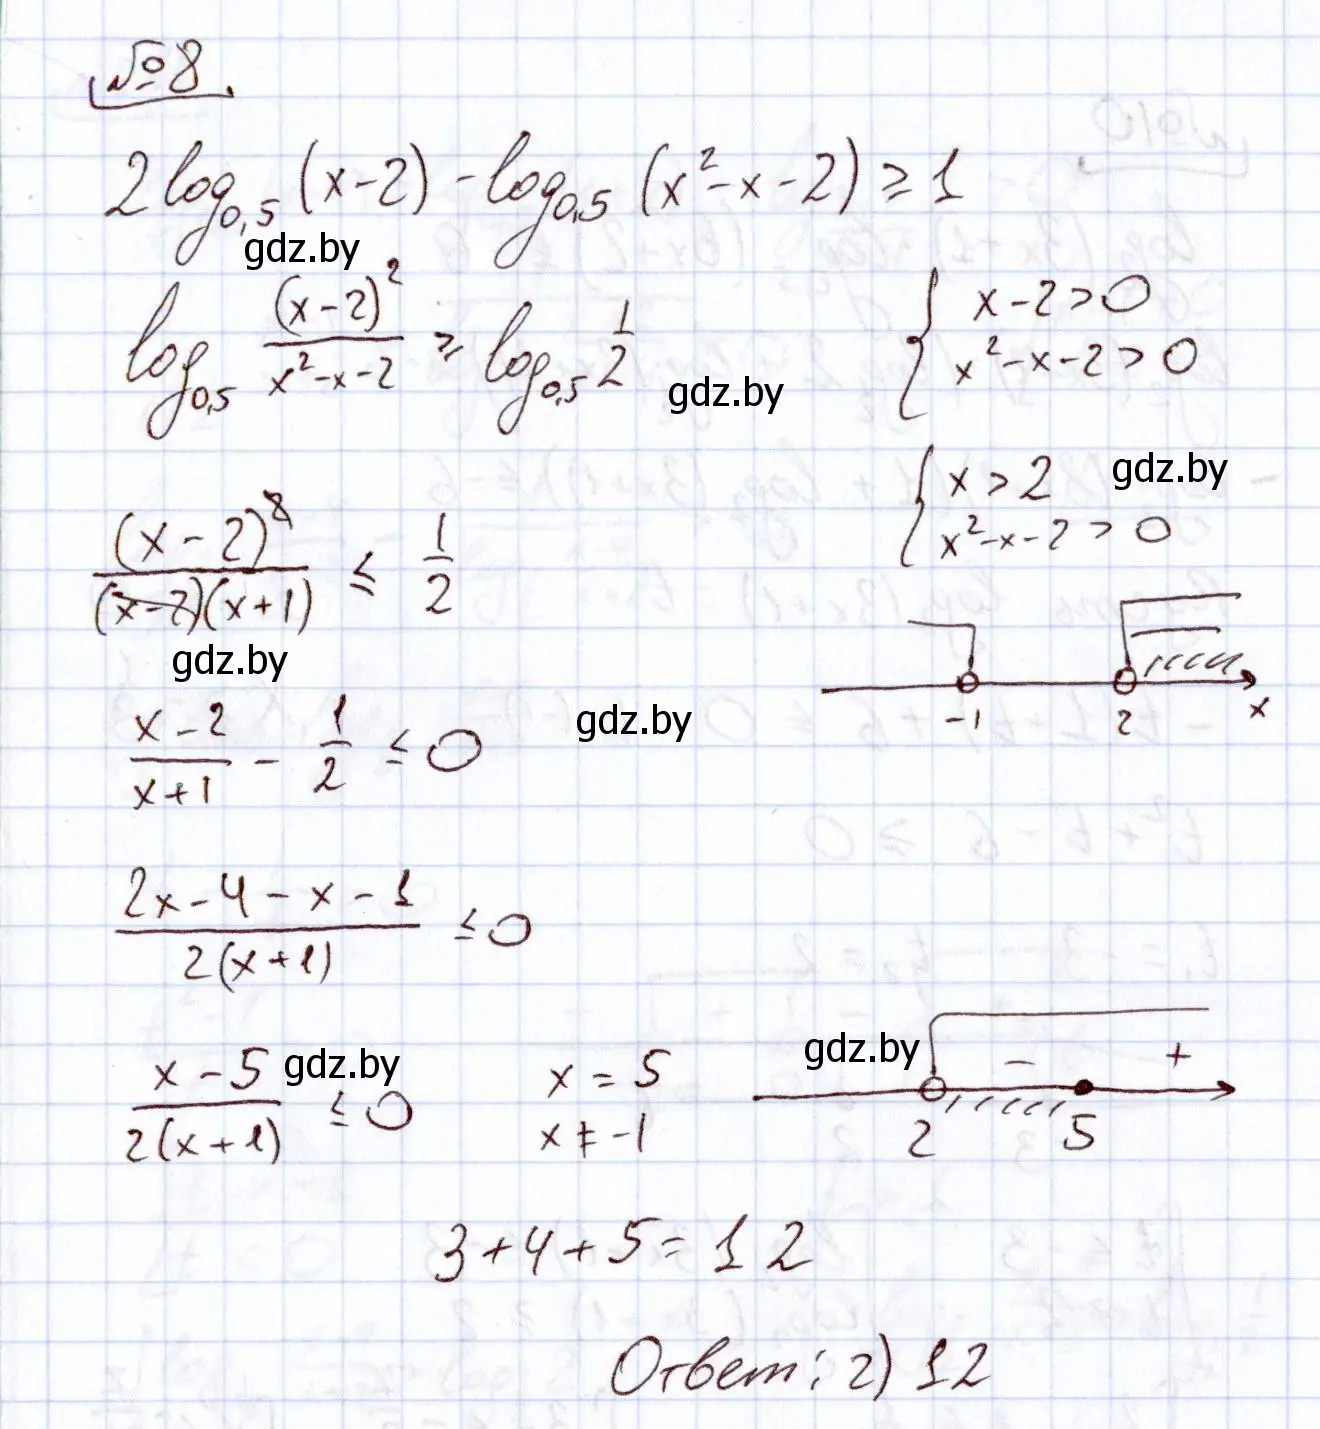 №8.
2log₀,₅(x-2) - log₀,₅(x²-x-2) ≥ 1
gdz.by
log₀,₅ (x-2)²/(x²-x-2) ≥ log₀,₅ 1/2
gdz.by
{ x-2>0
x²-x-2>0
{ x>2
x²-x-2>0
gdz.by
-1 2 x
(x-2)²/((x-2)(x+1)) ≤ 1/2
gdz.by
(x-2)/(x+1) - 1/2 ≤ 0
gdz.by
(2x-4-x-1)/(2(x+1)) ≤ 0
(x-5)/(2(x+1)) ≤ 0
gdz.by
x = 5
x ≠ -1
gdz.by
- +
2 5
3+4+5=12
Ответ: г) 12